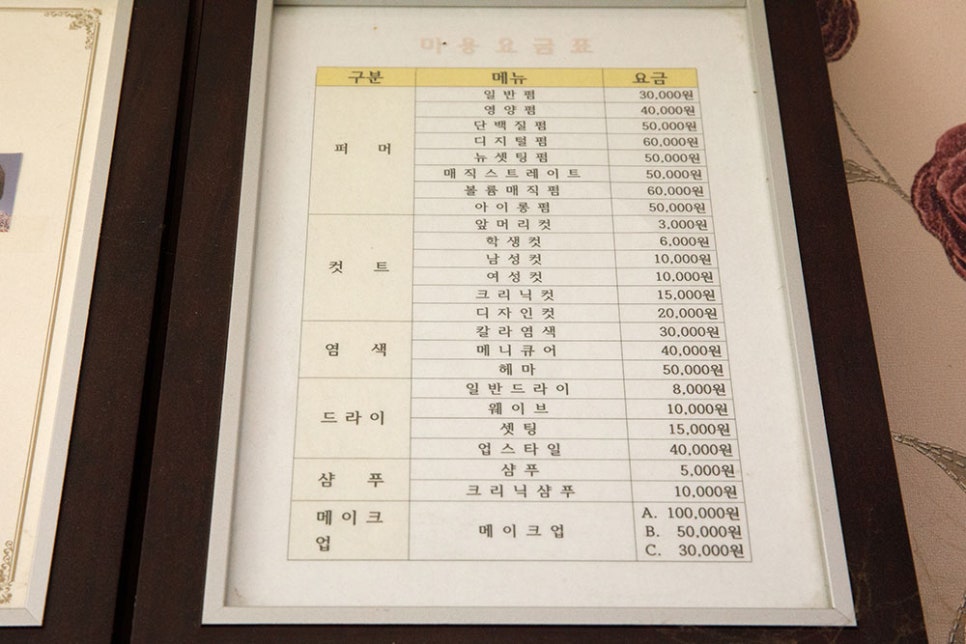 미용요금표
구분 메뉴 요금
퍼 머
일반펌 30,000원
영양펌 40,000원
단백질펌 50,000원
디지털펌 60,000원
뉴셋팅펌 50,000원
매직스트레이트 50,000원
볼륨매직펌 60,000원
아이롱펌 50,000원
컷 트
앞머리컷 3,000원
학생컷 6,000원
남성컷 10,000원
여성컷 10,000원
크리닉컷 15,000원
디자인컷 20,000원
염 색
칼라염색 30,000원
메니큐어 40,000원
헤마 50,000원
드라이
일반드라이 8,000원
웨이브 10,000원
셋팅 15,000원
업스타일 40,000원
샴 푸
샴푸 5,000원
크리닉샴푸 10,000원
메이크
업
메이크업
A. 100,000원
B. 50,000원
C. 30,000원